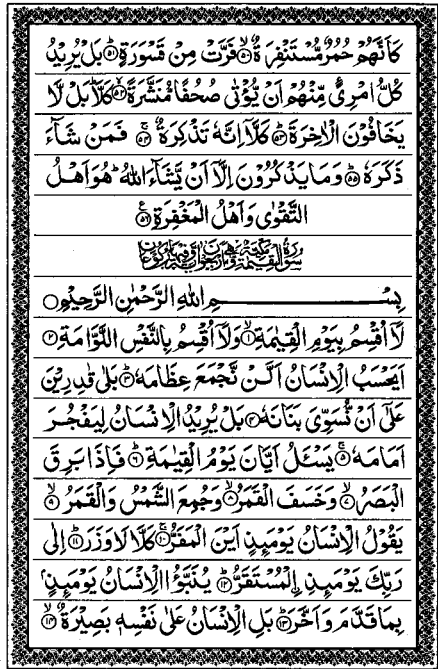 كَاَنَّهُمْ حُمُرٌ مُّسْتَنْفِرَةٌ ۙ﴿۵۰﴾ فَرَّتْ مِنْ قَسْوَرَةٍ ؕ﴿۵۱﴾ بَلْ يُرِيْدُ
كُلُّ امْرِئٍ مِّنْهُمْ اَنْ يُّؤْتٰى صُحُفًا مُّنَشَّرَةً ۙ﴿۵۲﴾ كَلَّا ؕ بَلْ لَّا
يَخَافُوْنَ الْاٰخِرَةَ ؕ﴿۵۳﴾ كَلَّاۤ اِنَّهٗ تَذْكِرَةٌ ۚ﴿۵۴﴾ فَمَنْ شَآءَ
ذَكَرَهٗ ؕ﴿۵۵﴾ وَمَا يَذْكُرُوْنَ اِلَّاۤ اَنْ يَّشَآءَ اللّٰهُ ؕ هُوَ اَهْلُ
التَّقْوٰى وَاَهْلُ الْمَغْفِرَةِ ﴿۵۶﴾ ع
بِسْمِ اللّٰهِ الرَّحْمٰنِ الرَّحِيْمِ ○
لَاۤ اُقْسِمُ بِيَوْمِ الْقِيٰمَةِ ۙ﴿۱﴾ وَلَاۤ اُقْسِمُ بِالنَّفْسِ اللَّوَّامَةِ ؕ﴿۲﴾
اَيَحْسَبُ الْاِنْسَانُ اَلَّنْ نَّجْمَعَ عِظَامَهٗ ؕ﴿۳﴾ بَلٰى قٰدِرِيْنَ
عَلٰۤى اَنْ نُّسَوِّىَ بَنَانَهٗ ﴿۴﴾ بَلْ يُرِيْدُ الْاِنْسَانُ لِيَفْجُرَ
اَمَامَهٗ ۚ﴿۵﴾ يَسْئَلُ اَيَّانَ يَوْمُ الْقِيٰمَةِ ؕ﴿۶﴾ فَاِذَا بَرِقَ
الْبَصَرُ ۙ﴿۷﴾ وَخَسَفَ الْقَمَرُ ۙ﴿۸﴾ وَجُمِعَ الشَّمْسُ وَالْقَمَرُ ۙ﴿۹﴾
يَقُوْلُ الْاِنْسَانُ يَوْمَئِذٍ اَيْنَ الْمَفَرُّ ۚ﴿۱۰﴾ كَلَّا لَا وَزَرَ ؕ﴿۱۱﴾ اِلٰى
رَبِّكَ يَوْمَئِذِ ۨالْمُسْتَقَرُّ ؕ﴿۱۲﴾ يُنَبَّؤُا الْاِنْسَانُ يَوْمَئِذٍۭ
بِمَا قَدَّمَ وَاَخَّرَ ؕ﴿۱۳﴾ بَلِ الْاِنْسَانُ عَلٰى نَفْسِهٖ بَصِيْرَةٌ ۙ﴿۱۴﴾